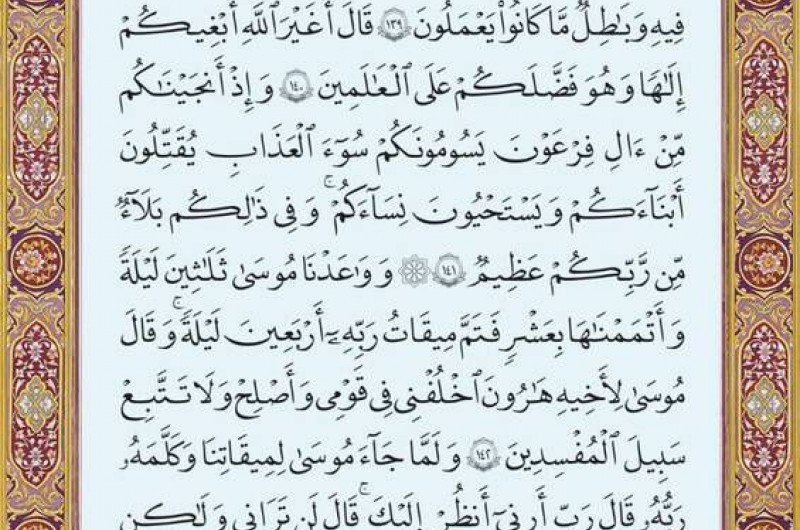 فِيهِ وَبَٰطِلٌ مَّا كَانُوا۟ يَعْمَلُونَ ١٣٩ قَالَ أَغَيْرَ ٱللَّهِ أَبْغِيكُمْ
إِلَٰهًا وَهُوَ فَضَّلَكُمْ عَلَى ٱلْعَٰلَمِينَ ١٤٠ وَإِذْ أَنجَيْنَٰكُم
مِّنْ ءَالِ فِرْعَوْنَ يَسُومُونَكُمْ سُوٓءَ ٱلْعَذَابِ يُقَتِّلُونَ
أَبْنَآءَكُمْ وَيَسْتَحْيُونَ نِسَآءَكُمْ ۚ وَفِى ذَٰلِكُم بَلَآءٌ
مِّن رَّبِّكُمْ عَظِيمٌ ١٤١ ۞ وَوَٰعَدْنَا مُوسَىٰ ثَلَٰثِينَ لَيْلَةً
وَأَتْمَمْنَٰهَا بِعَشْرٍ فَتَمَّ مِيقَٰتُ رَبِّهِۦٓ أَرْبَعِينَ لَيْلَةً ۚ وَقَالَ
مُوسَىٰ لِأَخِيهِ هَٰرُونَ ٱخْلُفْنِى فِى قَوْمِى وَأَصْلِحْ وَلَا تَتَّبِعْ
سَبِيلَ ٱلْمُفْسِدِينَ ١٤٢ وَلَمَّا جَآءَ مُوسَىٰ لِمِيقَٰتِنَا وَكَلَّمَهُۥ
رَبُّهُۥ قَالَ رَبِّ أَرِنِىٓ أَنظُرْ إِلَيْكَ ۚ قَالَ لَن تَرَىٰنِى وَلَٰكِنِ